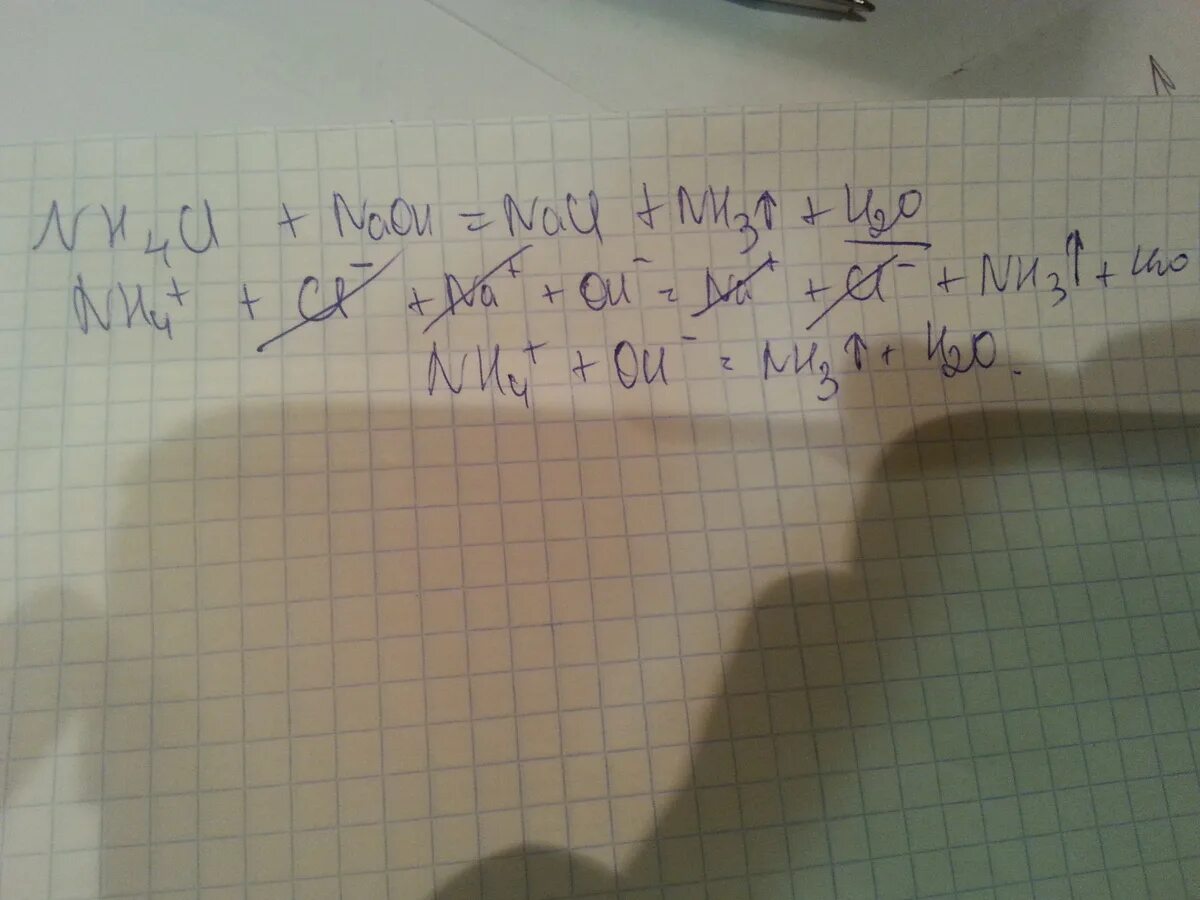 NH₄Cl + NaOH = NaCl + NH₃↑ + H₂O
NH₄⁺ + Cl⁻ + Na⁺ + OH⁻ = Na⁺ + Cl⁻ + NH₃↑ + H₂O
NH₄⁺ + OH⁻ = NH₃↑ + H₂O.